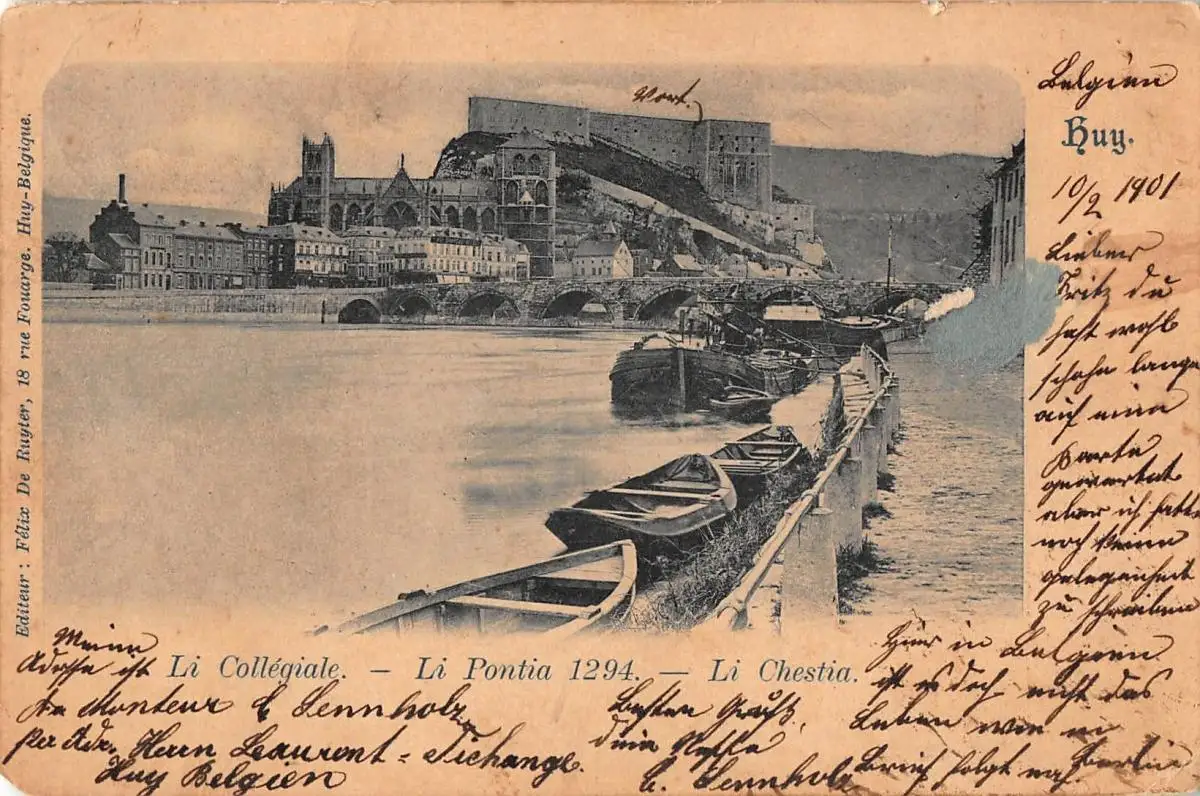 Editeur : Félix De Ruyter, 18 rue Fouarge. Huy-Belgique.
Fort.
Belgien
Huy.
10/2 1901
Lieber
Fritz du
hast wohl
schohn lange
auf eine
Karte
gewartet
aber ich hatte
noch keine
gelegenheit
zu schreiben
Hier in Belgien
ist es doch nicht das
Leben wie in
Berlin
Brief folgt nach.
Li Collégiale. — Li Pontia 1294. — Li Chestia.
Meine
Adresse ist
An Monteur E Sennholz
per Adr. Herrn Laurent-
Huy Belgien
Besten Gruß
dein Neffe
E. Sennholz